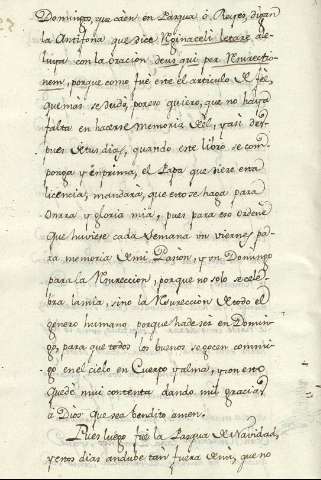 Domingo, que caen en Pasqua ò Reyes, digan
la Antifona que dice Rginaceli letare ale-
luya con la oracion deus qui per Rsurectio-
nem, porque como fue ente el articulo R feè,
que mas se dudò, por eso quiero, que no haya
falta en hacerse memoria R el, y asi des-
pues R tus dias, quando ente libro se com-
ponga y enprima, el Papa que diere en la
licencia, mandarà, que esto se haga para
onrra y gloria mia, pues para eso ordenè
que huviese cada semana un viernes pa-
ra memoria R mi Pasion, y un Domingo
para la Rsureccion, porque no solo se cele-
bra la mia, sino la Rsureccion R todo el
genero humano porque hade ser en Domin-
go, para que todos los buenos se gocen conmi-
go en el cielo en Cuerpo y alma, y con esto
quedè mui contenta dando mil gracias
à Dios que sea bendito amen.
Pues luego fuè la Pasqua R Navidad,
y estos dias andube tan fuera R mi, que no